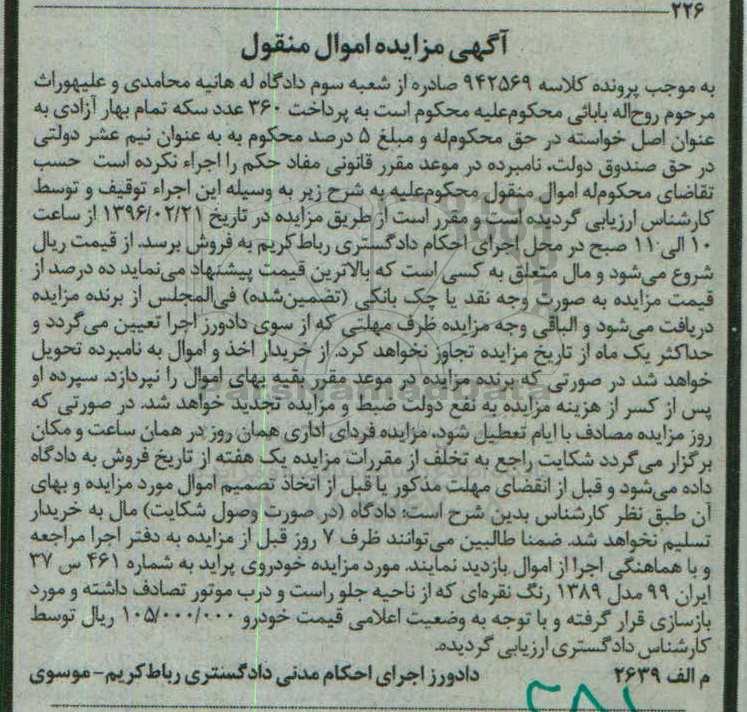 ۲۲۶
آگهی مزایده اموال منقول
به موجب پرونده کلاسه ۹۴۲۵۶۹ صادره از شعبه سوم دادگاه له هانیه محامدی و علیهوراث
مرحوم روح‌اله بابائی محکوم‌علیه محکوم است به پرداخت ۳۶۰ عدد سکه تمام بهار آزادی به
عنوان اصل خواسته در حق محکوم‌له و مبلغ ۵ درصد محکوم به به عنوان نیم عشر دولتی
در حق صندوق دولت. نامبرده در موعد مقرر قانونی مفاد حکم را اجراء نکرده است حسب
تقاضای محکوم‌له اموال منقول محکوم‌علیه به شرح زیر به وسیله این اجراء توقیف و توسط
کارشناس ارزیابی گردیده است و مقرر است از طریق مزایده در تاریخ ۱۳۹۶/۰۲/۲۱ از ساعت
۱۰ الی ۱۱ صبح در محل اجرای احکام دادگستری رباط‌کریم به فروش برسد. از قیمت ریال
شروع می‌شود و مال متعلق به کسی است که بالاترین قیمت پیشنهاد می‌نماید ده درصد از
قیمت مزایده به صورت وجه نقد یا چک بانکی (تضمین‌شده) فی‌المجلس از برنده مزایده
دریافت می‌شود و الباقی وجه مزایده ظرف مهلتی که از سوی دادورز اجرا تعیین می‌گردد و
حداکثر یک ماه از تاریخ مزایده تجاوز نخواهد کرد. از خریدار اخذ و اموال به نامبرده تحویل
خواهد شد در صورتی که برنده مزایده در موعد مقرر بقیه بهای اموال را نپردازد. سپرده او
پس از کسر از هزینه مزایده به نفع دولت ضبط و مزایده تجدید خواهد شد. در صورتی که
روز مزایده مصادف با ایام تعطیل شود، مزایده فردای اداری همان روز در همان ساعت و مکان
برگزار می‌گردد شکایت راجع به تخلف از مقررات مزایده یک هفته از تاریخ فروش به دادگاه
داده می‌شود و قبل از انقضای مهلت مذکور یا قبل از اتخاذ تصمیم اموال مورد مزایده و بهای
آن طبق نظر کارشناس بدین شرح است؛ دادگاه (در صورت وصول شکایت) مال به خریدار
تسلیم نخواهد شد. ضمنا طالبین می‌توانند ظرف ۷ روز قبل از مزایده به دفتر اجرا مراجعه
و با هماهنگی اجرا از اموال بازدید نمایند. مورد مزایده خودروی پراید به شماره ۴۶۱ س ۳۷
ایران ۹۹ مدل ۱۳۸۹ رنگ نقره‌ای که از ناحیه جلو راست و درب موتور تصادف داشته و مورد
بازسازی قرار گرفته و با توجه به وضعیت اعلامی قیمت خودرو ۱۰۵/۰۰۰/۰۰۰ ریال توسط
کارشناس دادگستری ارزیابی گردیده.
م الف ۲۶۳۹ دادورز اجرای احکام مدنی دادگستری رباط‌کریم- موسوی